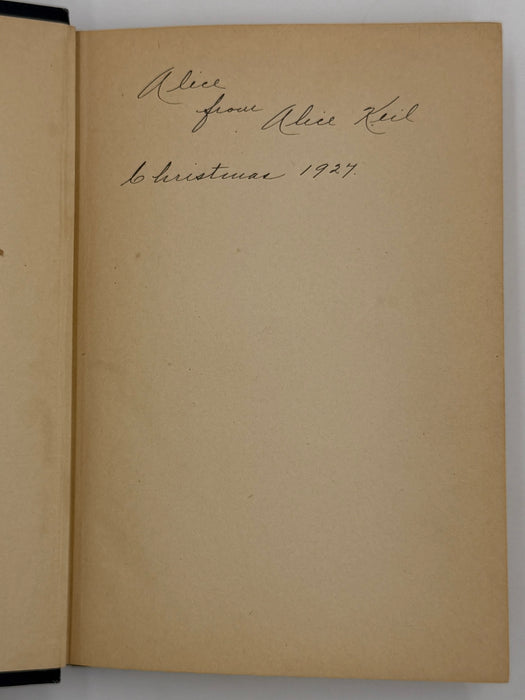 Alice
from Alice Keil
Christmas 1927.